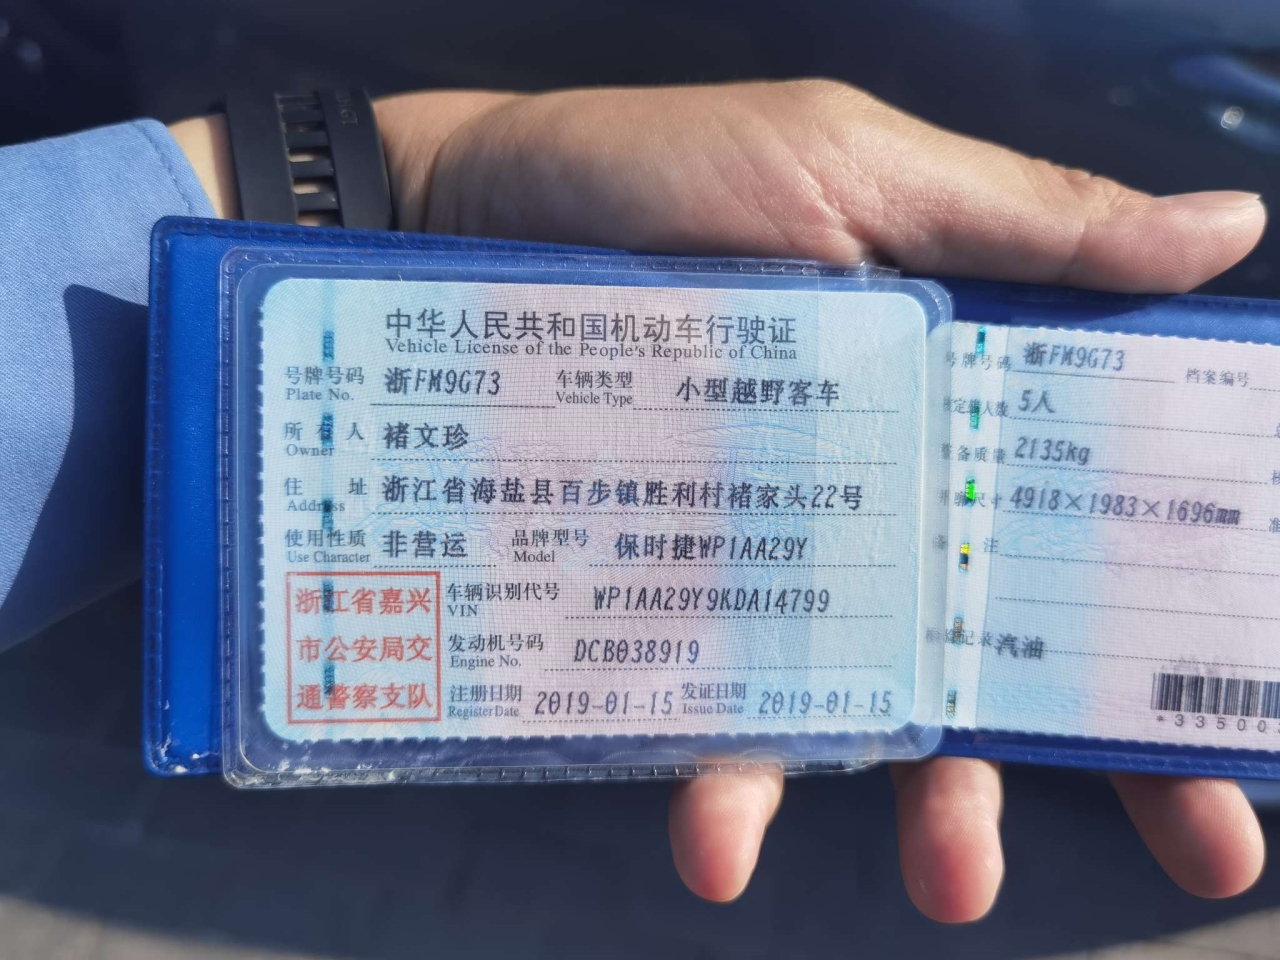 中华人民共和国机动车行驶证
Vehicle License of the People's Republic of China
号牌号码 浙FM9G73 车辆类型 小型越野客车
Plate No. Vehicle Type
所有人 褚文珍
Owner
住址 浙江省海盐县百步镇胜利村褚家头22号
Address
使用性质 非营运 品牌型号 保时捷WP1AA29Y
Use Character Model
浙江省嘉兴
市公安局交
通警察支队
车辆识别代号 WP1AA29Y9KDA14799
VIN
发动机号码 DCB038919
Engine No.
注册日期 2019-01-15 发证日期 2019-01-15
Register Date Issue Date
号牌号码 浙FM9G73 档案编号
核定载人数 5人
整备质量 2135kg
外廓尺寸 4918×1983×1696mm
备注
检验记录 汽油
*33500